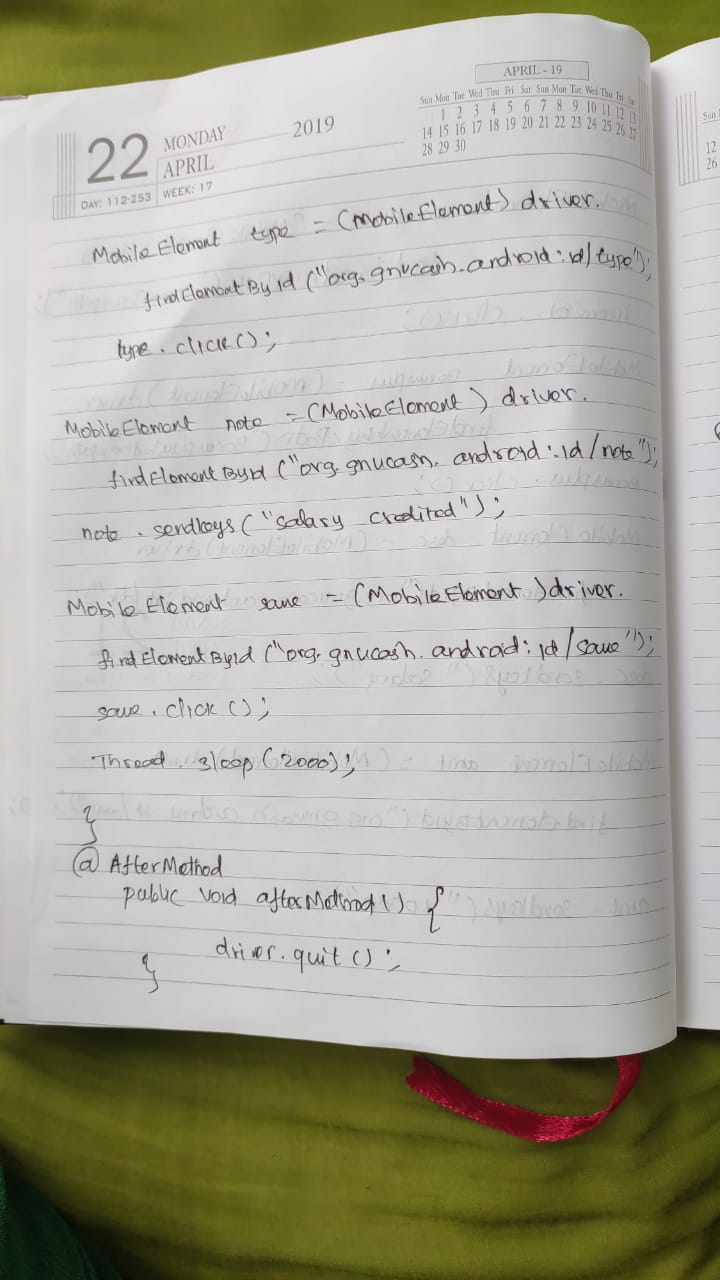 APRIL - 19
Sun Mon Tue Wed Thu Fri Sat Sun Mon Tue Wed Thu Fri Sa
1 2 3 4 5 6 7 8 9 10 11 12 13
14 15 16 17 18 19 20 21 22 23 24 25 26 27
28 29 30
22 MONDAY 2019
APRIL
DAY: 112-253 WEEK: 17
Mobile Element type = (MobileElement) driver.
findElementById ("org.gnucash.android:id/type");
type.click();
MobileElement note = (MobileElement) driver.
findElementById ("org.gnucash.android:id/note");
note.sendkeys("salary credited");
Mobile Element save = (MobileElement) driver.
findElementById ("org.gnucash.android:id/save");
save.click();
Thread.sleep(2000);
}
@AfterMethod
public void afterMethod() {
driver.quit();
}
Sun
12
26